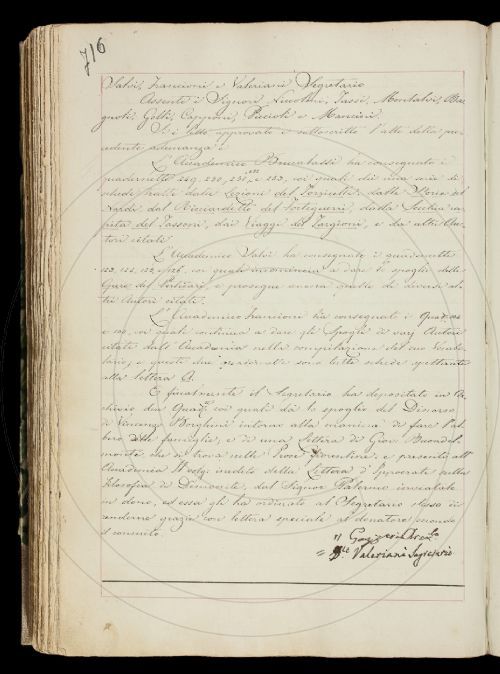 716
Salvi, Francioni e Valeriani Segretario
Assenti i Signori Niccolini, Tassi, Montalvi, Bagnoli, Gelli, Capponi, Puccioli e Mancini.
Si è letto approvato e sottoscritto l'atto della precedente adunanza e
L'Accademico Brucalassi ha consegnato i
quadernetti 249, 250, 251, 252 e 253, coi quali dà una serie di
schede tratte dalle Lezioni del Torricelli, dalla Storia del
Nardi, dal Ricciardetto del Forteguerri, dalla Secchia rapita del Tassoni, dai Viaggi del Targioni, e da altri Autori citati.
L'Accademico Salvi ha consegnato i quadernetti
123, 124, 125, e 126, coi quali incomincia a dare lo spoglio delle
Opere del e prosegue ancora quello di diversi altri Autori citati.
L'Accademico Francioni ha consegnato i Quad.
e coi quali continua a dare gli Spogli di varj Autori
citati dall'Accademia nella compilazione del suo Vocabolario, e questi due quadernetti sono tutte schede spettanti
alla lettera G.
E finalmente il Segretario ha depositato in Archivio due Quad. coi quali dà lo spoglio del Discorso
di Vincenzo Borghini intorno alla maniera di fare l'albero delle famiglie, e di una Lettera di Giov. Buondelmonti che si trova nelle Prose fiorentine, e presentò all'
Accademia il volgo inedito della Lettera d'Ippocrate sulla
filosofia di Democrito, dal Signor Palermo inviatale
in dono, ed essa gli ha ordinato al Segretario stesso di
renderne grazie con lettera speciale al donatore secondo
il consueto.
= Valeriani Segretario